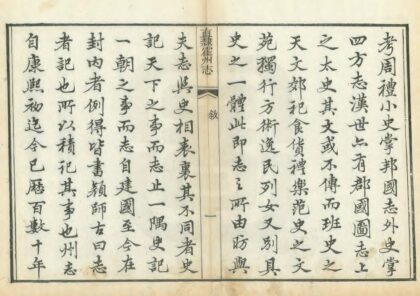 考周禮小史掌邦國志外史掌
四方志漢世亦有郡國圖志上
之太史其文或不傳而班史之
天文郊祀食貨禮樂范史之文
苑獨行方術逸民列女又別具
史之一體此即志之所由昉與
直隸霍州志
敘
一
夫志與史相表裏其不同者史
記天下之事而志止一隅史記
一朝之事而志自建國至今在
封内者例得皆書顔師古曰志
者記也所以積記其事也州志
自康熙初迄今已歷百數十年